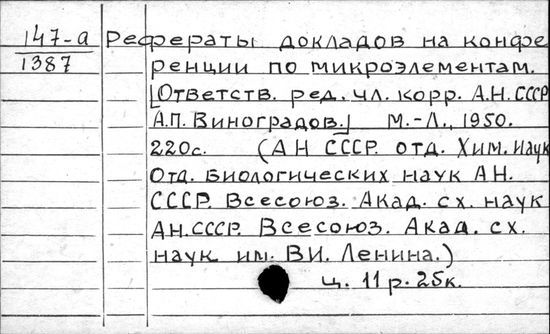 147-а Рефераты докладов на конфе
1387 ренции по микроэлементам.
[Ответств. ред. чл. корр. А.Н. СССР
А.П. Виноградов.] М.-Л., 1950.
220с. (АН СССР. отд. Хим. Наук
Отд. биологических наук АН.
СССР. Всесоюз. Акад. сх. наук
Ан.СССР. Всесоюз. Акад. сх.
наук им. В.И. Ленина.)
ц. 11 р. 25к.